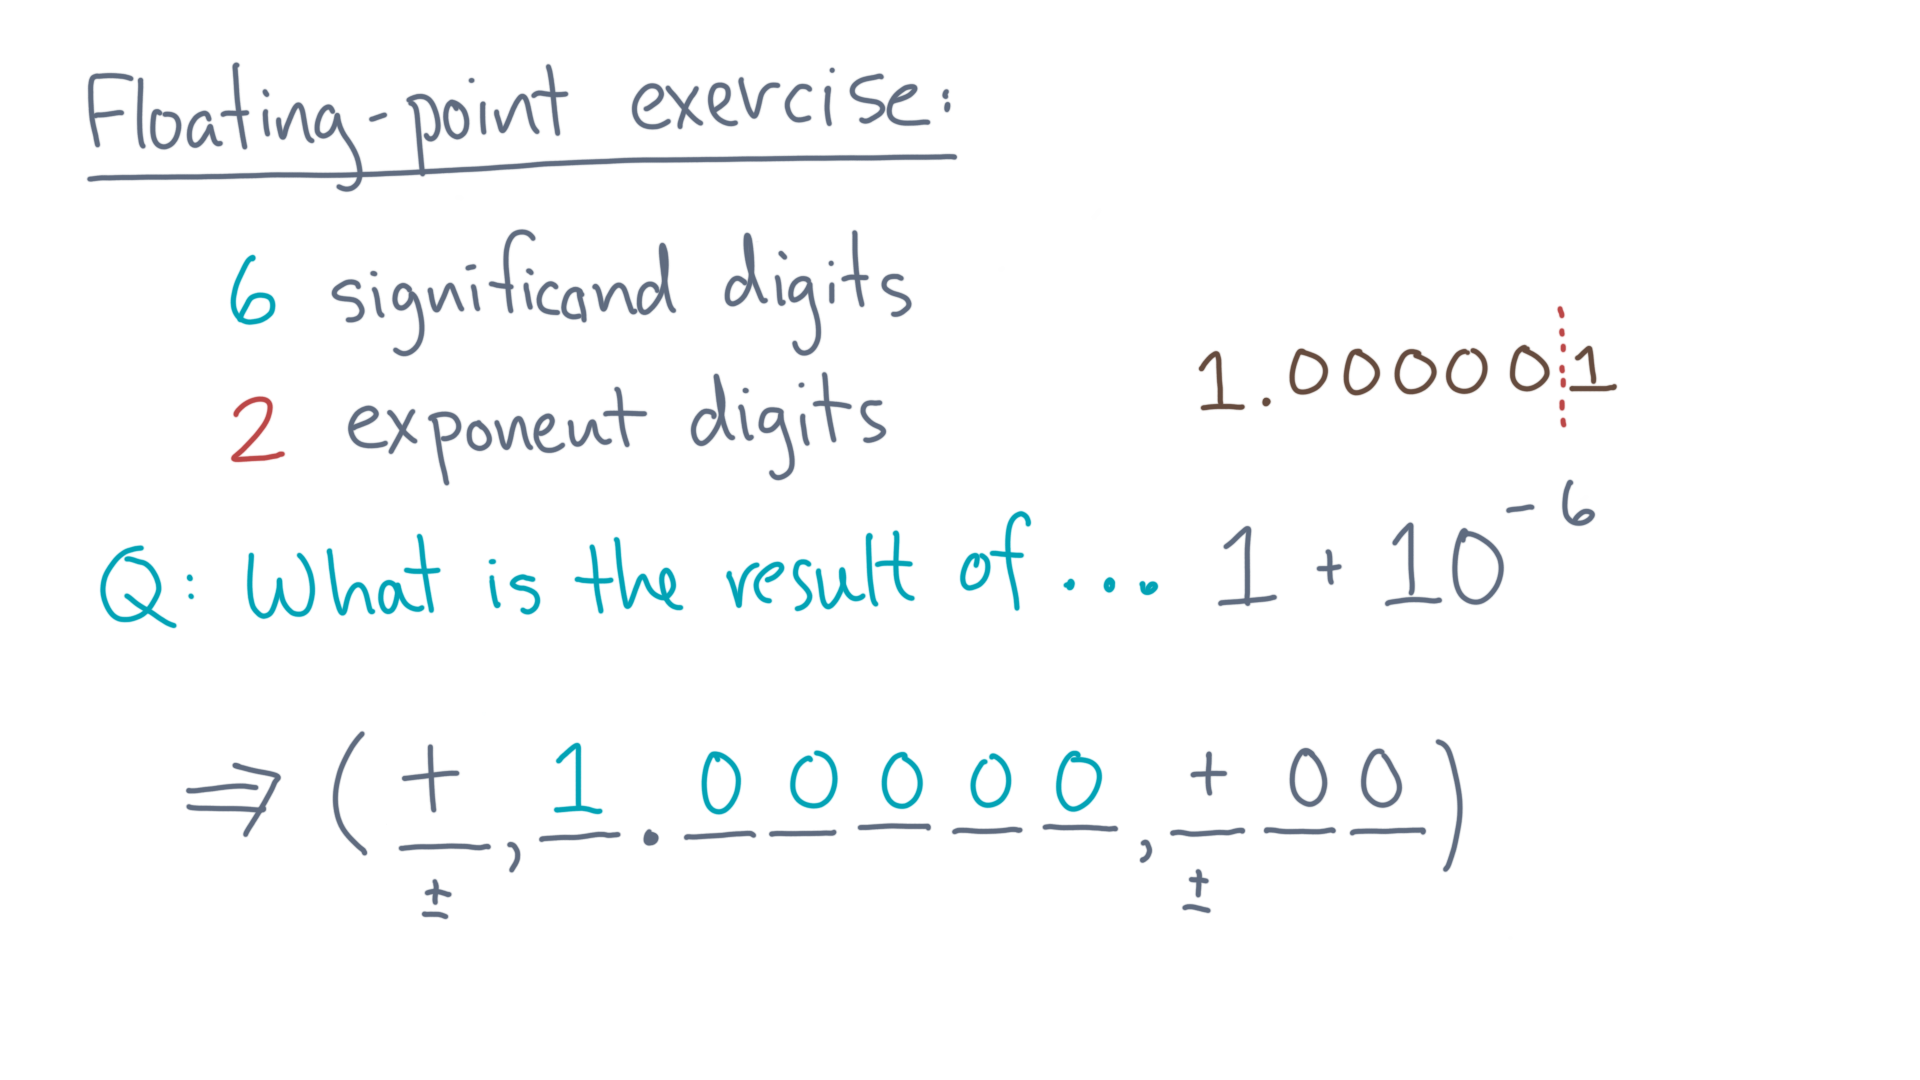 Floating-point exercise:
6 significand digits
1.000001
2 exponent digits
Q: What is the result of... 1 + 10^-6
⇒ (+, 1.00000, +00)
± ±